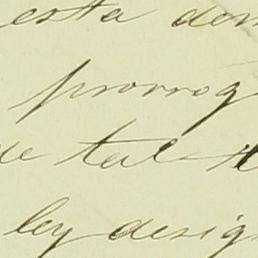 esta den
prorrog
de tal t
ley desig